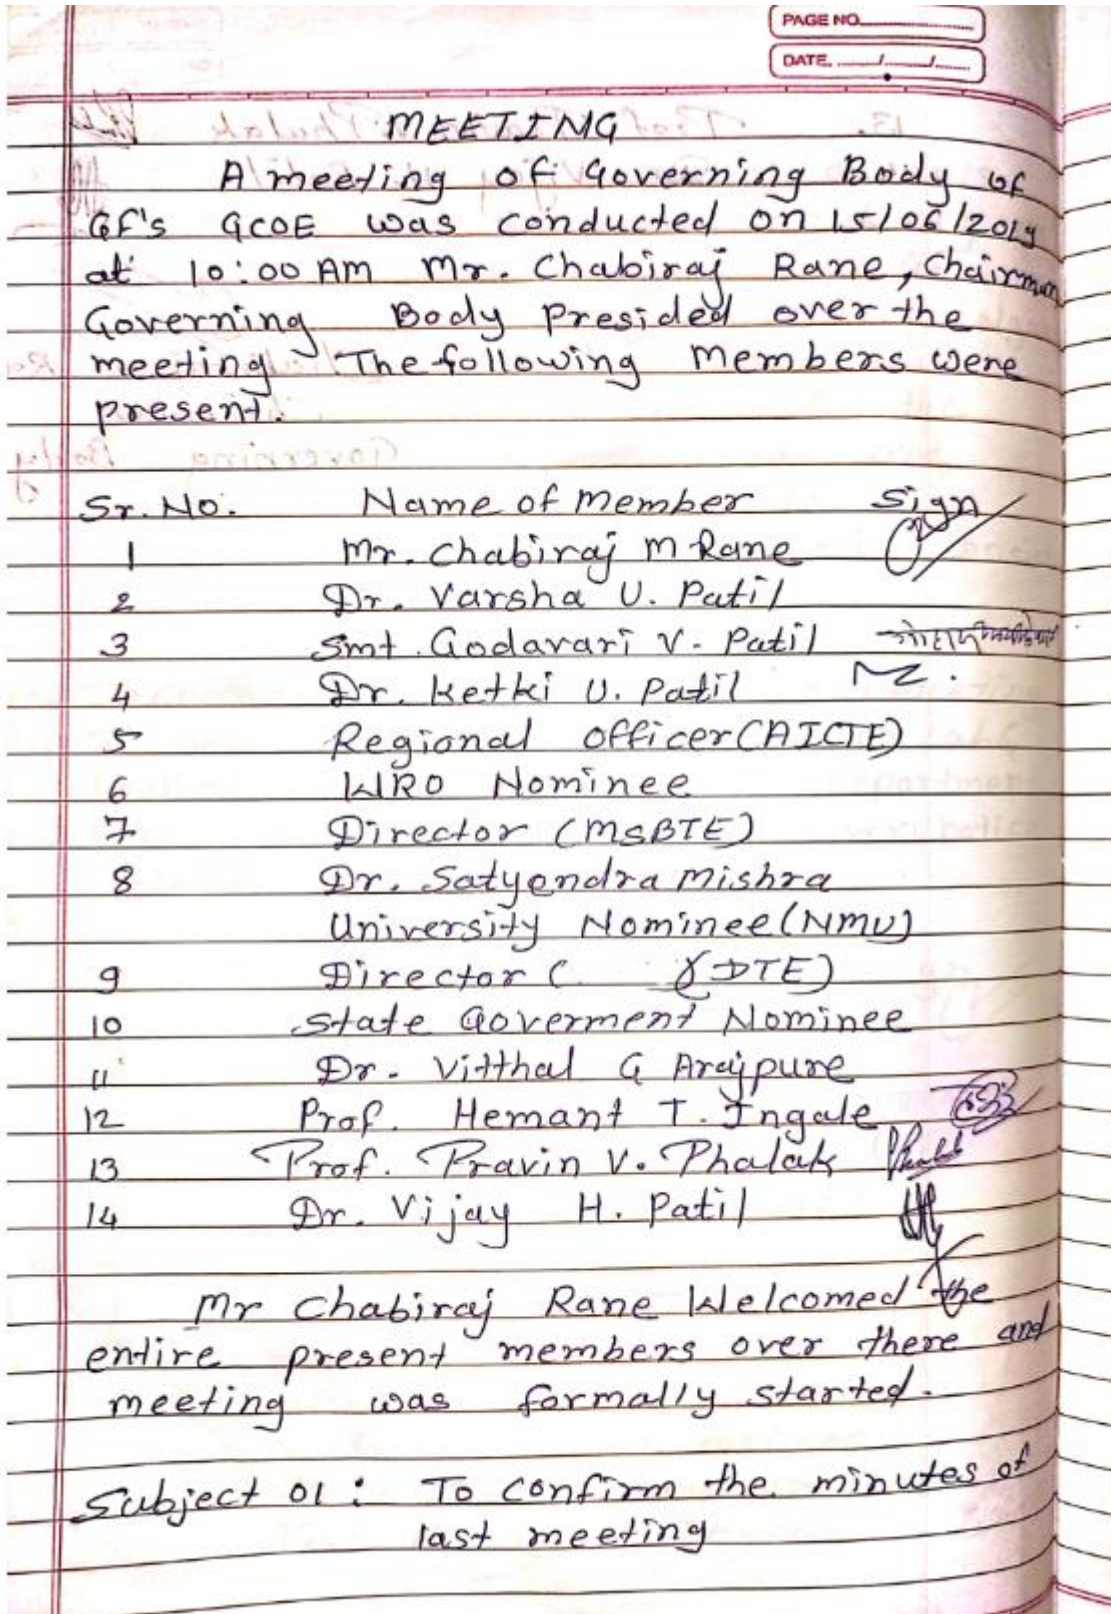 PAGE NO.
DATE. / /
MEETING
A meeting of Governing Body of
GF's GCOE was conducted on 15/06/2019
at 10:00 AM Mr. Chabiraj Rane, Chairman
Governing Body presided over the
meeting The following Members were
present.
Sr. No. Name of member Sign
1 Mr. Chabiraj M Rane
2 Dr. Varsha U. Patil
3 Smt. Godavari V. Patil
4 Dr. Ketki U. Patil
5 Regional officer (AICTE)
6 WRO Nominee
7 Director (MSBTE)
8 Dr. Satyendra Mishra
University Nominee (NMU)
9 Director ( (DTE)
10 State Goverment Nominee
11 Dr. Vitthal G Arajpure
12 Prof. Hemant T. Ingale
13 Prof. Pravin V. Phalak
14 Dr. Vijay H. Patil
Mr Chabiraj Rane Welcomed the
entire present members over there and
meeting was formally started.
Subject 01 : To confirm the minutes of
last meeting